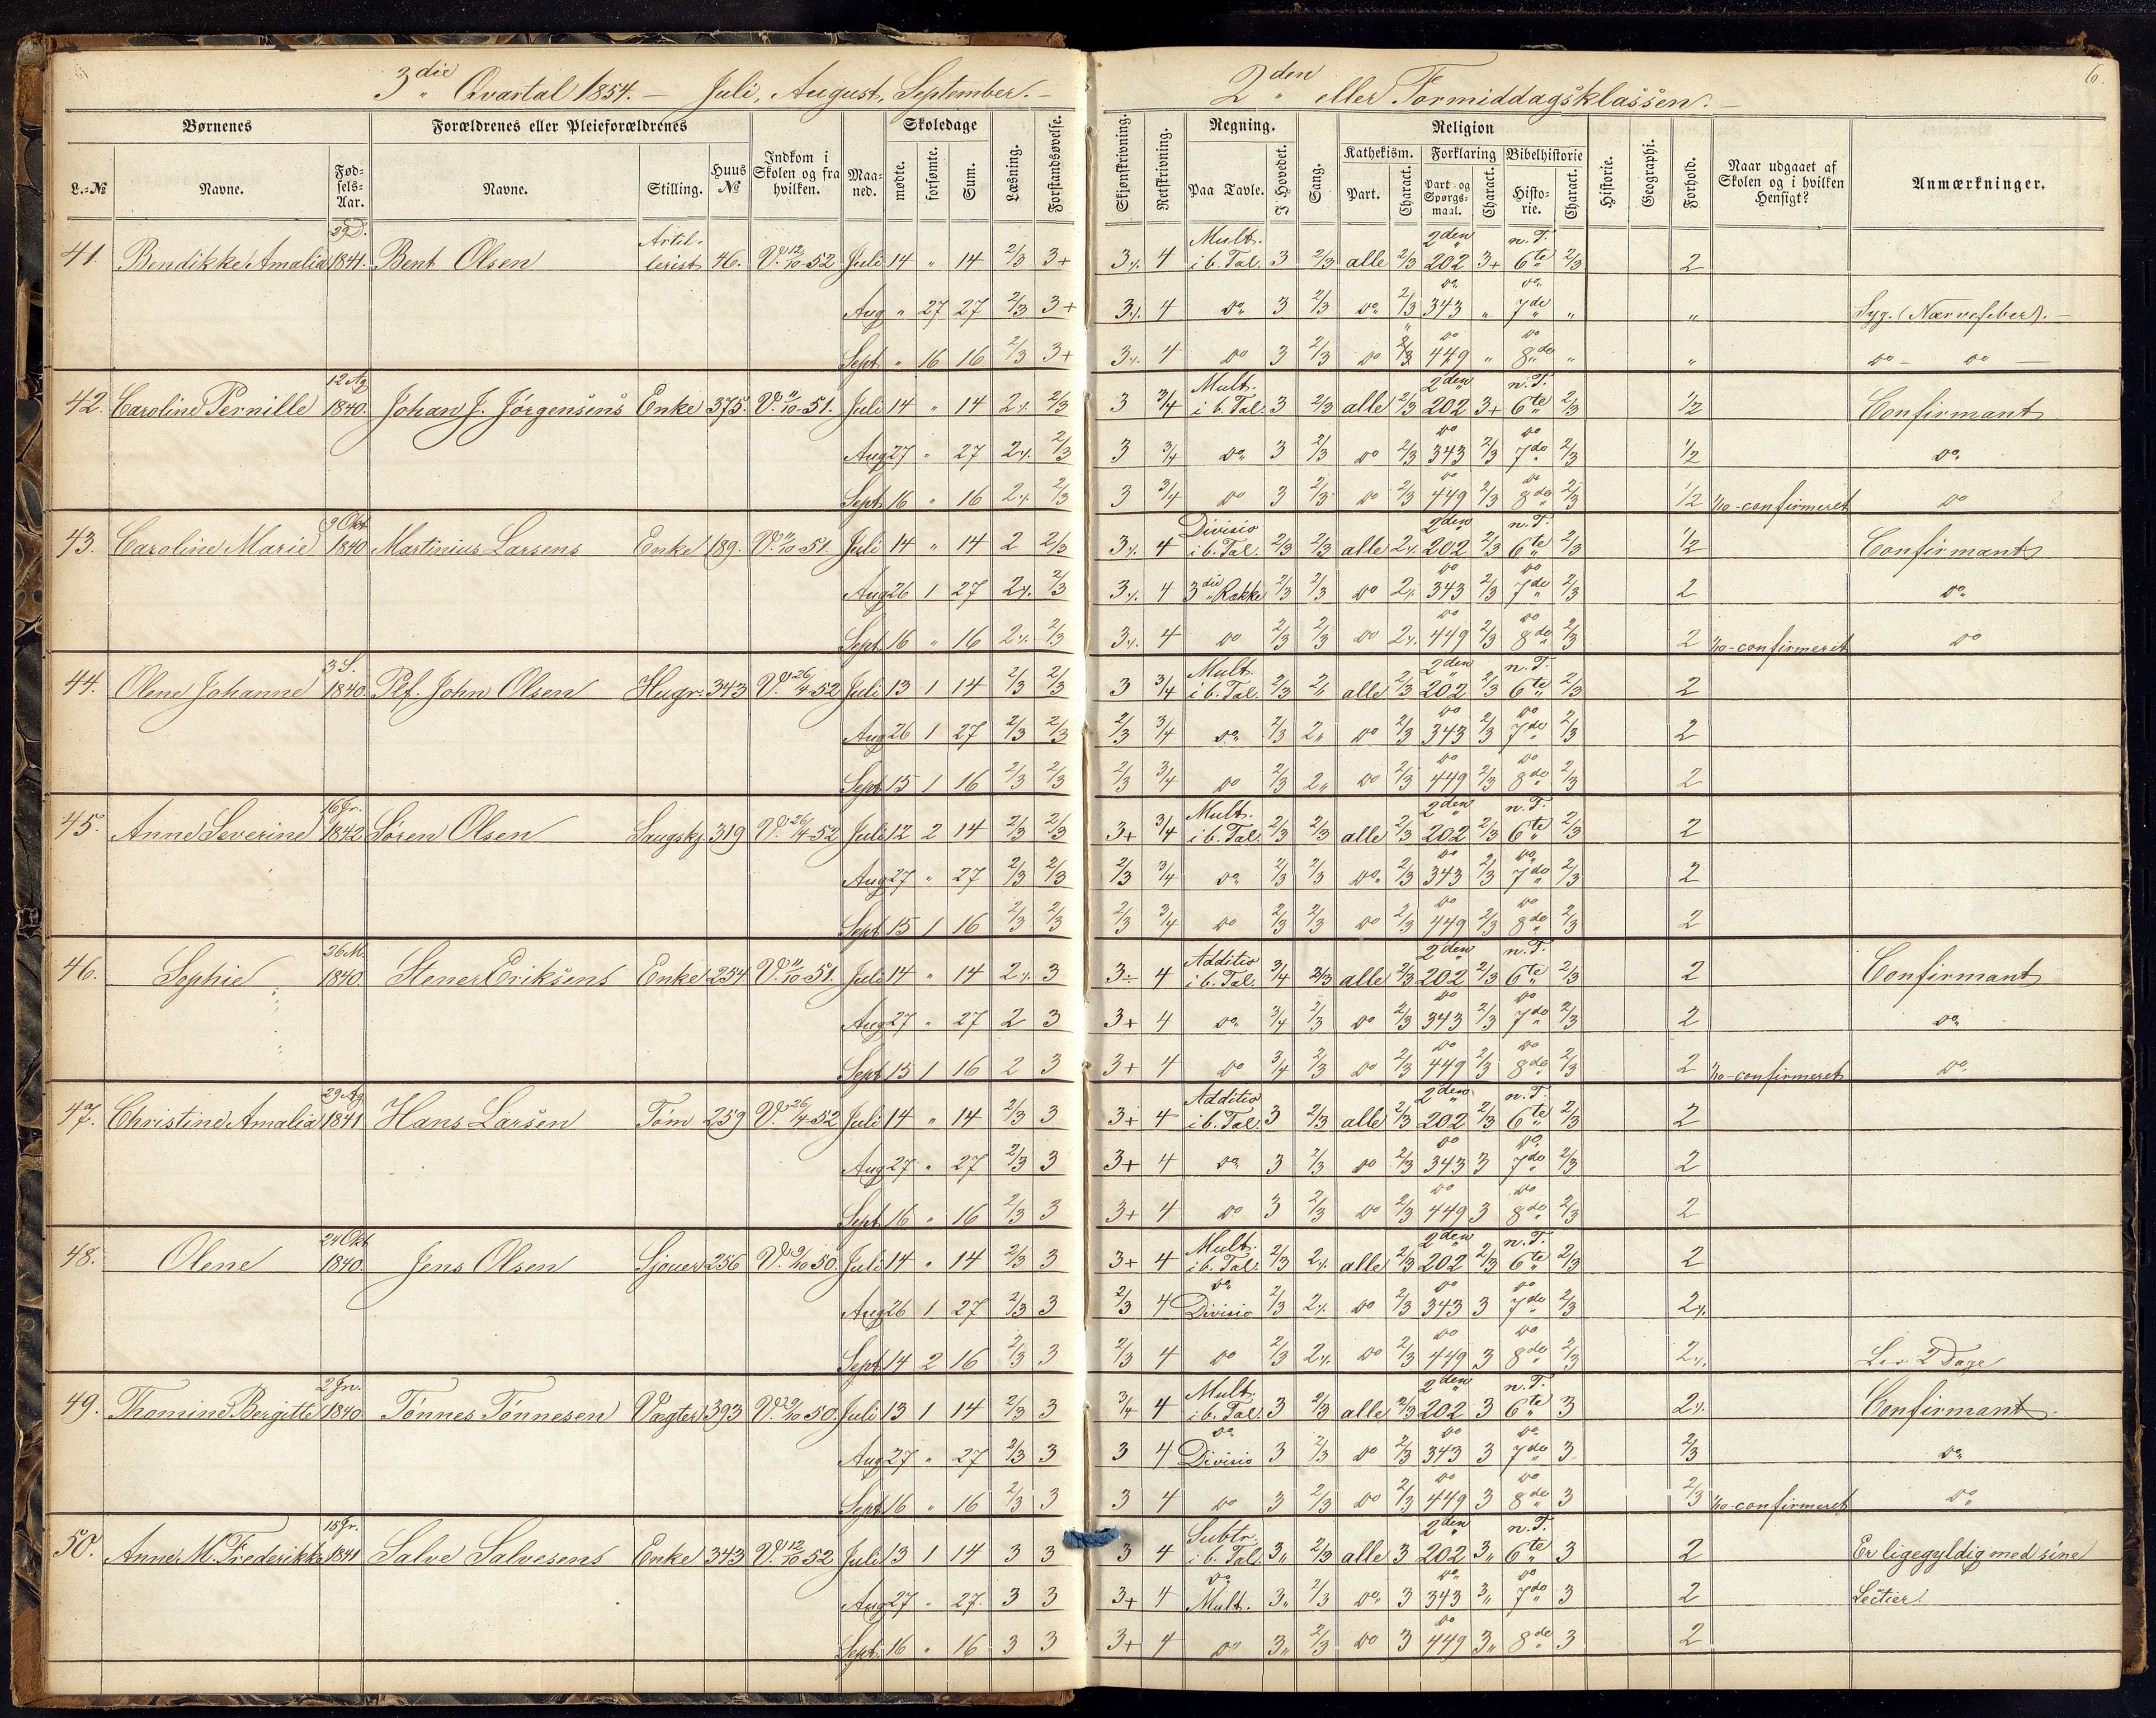 3die Qvartal 1854. — Juli, August, September. —
2den eller Formiddagsklassen. —
6.
Børnenes | Forældrenes eller Pleieforældrenes | Indkom i Skolen og fra hvilken. | Maaned. | Skoledage | Læsning. | Forstandsøvelse. | Skjønskrivning. | Retskrivning. | Regning. | Sang. | Religion | Historie. | Geographi. | Forhold. | Naar udgaaet af Skolen og i hvilken Hensigt? | Anmærkninger.
L.-№ | Navne. | Fødsels-Aar. | Navne. | Stilling. | Huus № | mødte. | forsømte. | Sum. | Paa Tavle. | I Hovedet. | Kathekism. | Forklaring | Bibelhistorie
Part. | Charact. | Part og Spørgsmaal. | Charact. | Historie. | Charact.
41. Bendikke Amalia 1841. Bent Olsen Artillerist 46. V. 12/10-52 Juli 14 " 14 2/3 3+ 3 4 Mult. i b. Tal. 3 2/3 alle 2/3 2den 202 3+ n. T. 6te 2/3 2
Aug " 27 27 2/3 3+ 3 4 do 3 2/3 do 2/3 do 343 " do 7de " " Syg. (Nærvefeber). —
Sept " 16 16 2/3 3+ 3 4 do 3 2/3 do 2/3 do 449 " do 8de " " do — do —
42. Caroline Pernille 12 Ag 1840. Johan J. Jørgensens Enke 375. V. 11/10-51. Juli 14 " 14 2 2/3 3 3/4 Mult. i b. Tal. 3 2/3 alle 2/3 2den 202 3+ n. T. 6te 2/3 1/2 Confirmant
Aug 27 " 27 2 2/3 3 3/4 do 3 2/3 do 2/3 do 343 2/3 do 7de 2/3 1/2 do
Sept 16 " 16 2 2/3 3 3/4 do 3 2/3 do 2/3 do 449 2/3 do 8de 2/3 1/2 1/10-confirmeret do
43. Caroline Marie 9 Okt 1840 Martinius Larsens Enke 189. V. 11/10-51. Juli 14 " 14 2 2/3 3 4 Divisio i b. Tal. 2/3 2/3 alle 2 2den 202 2/3 n. T. 6te 2/3 1/2 Confirmant
Aug 26 1 27 2 2/3 3 4 3die Række 2/3 2/3 do 2 do 343 2/3 do 7de 2/3 2 do
Sept 16 " 16 2 2/3 3 4 do 2/3 2/3 do 2 do 449 2/3 do 8de 2/3 2 1/10-confirmeret do
44. Olene Johanne 3 S. 1840. Plf. John Olsen Hugr. 343 V. 26/4-52 Juli 13 1 14 2/3 2/3 3 3/4 Mult. i b. Tal. 2/3 2 alle 2/3 2den 202 2/3 n. T. 6te 2/3 2
Aug 26 1 27 2/3 2/3 2/3 3/4 do 2/3 2 do 2/3 do 343 2/3 do 7de 2/3 2
Sept 15 1 16 2/3 2/3 2/3 3/4 do 2/3 2 do 2/3 do 449 2/3 do 8de 2/3 2
45. Anne Severine 16 Jr. 1842. Søren Olsen Saugskj. 319 V. 26/4-52 Juli 12 2 14 2/3 2/3 3+ 3/4 Mult. i b. Tal. 2/3 2/3 alle 2/3 2den 202 2/3 n. T. 6te 2/3 2
Aug 27 " 27 2/3 2/3 2/3 3/4 do 2/3 2/3 do 2/3 do 343 2/3 do 7de 2/3 2
Sept 15 1 16 2/3 2/3 2/3 3/4 do 2/3 2/3 do 2/3 do 449 2/3 do 8de 2/3 2
46. Sophie 26 M. 1840. Stener Eriksens Enke 254 V. 11/10-51. Juli 14 " 14 2 3 3÷ 4 Additio i b. Tal. 3/4 2/3 alle 2/3 2den 202 2/3 n. T. 6te 2/3 2 Confirmant
Aug 27 " 27 2 3 3+ 4 do 3/4 2/3 do 2/3 do 343 2/3 do 7de 2/3 2 do
Sept 15 1 16 2 3 3+ 4 do 3/4 2/3 do 2/3 do 449 2/3 do 8de 2/3 2 1/10-confirmeret do
47. Christine Amalia 29 Ag 1841 Hans Larsen Tøm 259 V. 26/4-52 Juli 14 " 14 2/3 3 3+ 4 Additio i b. Tal. 3 2/3 alle 2/3 2den 202 2/3 n. T. 6te 2/3 2
Aug 27 " 27 2/3 3 3+ 4 do 3 2/3 do 2/3 do 343 3 do 7de 2/3 2
Sept 16 " 16 2/3 3 3+ 4 do 3 2/3 do 2/3 do 449 3 do 8de 2/3 2
48. Olene 24 Okt 1840. Jens Olsen Sjouer 256 V. 9/10 50. Juli 14 " 14 2/3 3 3+ 4 Mult. i b. Tal. 2/3 2 alle 2/3 2den 202 2/3 n. T. 6te 2/3 2
Aug 26 1 27 2/3 3 2/3 4 do Divisio 2/3 2 do 2/3 do 343 3 do 7de 2/3 2
Sept 14 2 16 2/3 3 2/3 4 do 2/3 2 do 2/3 do 449 3 do 8de 2/3 2 Lov 2 Dage
49. Thomine Bergitte 2 Jn. 1840 Tønnes Tønnesen Vægter 393 V. 50. Juli 13 1 14 2/3 3 3/4 4 Mult. i b. Tal. 3 2/3 alle 2/3 2den 202 3 n. T. 6te 3 2 Confirmant.
Aug 27 " 27 2/3 3 3 4 do Divisio 3 2/3 do 2/3 do 343 3 do 7de 3 2/3 do
Sept 16 " 16 2/3 3 3 4 do 3 2/3 do 2/3 do 449 3 do 8de 3 2/3 1/10-confirmeret do
50. Anne M. Frederikke 15 Jr. 1841 Salve Salvesens Enke 343 V. 12/10 52 Juli 13 1 14 3 3 3 4 Subtr. i b. Tal. 3 2/3 alle 3 2den 202 3 n. T. 6te 3 2 Er ligegyldig med sine
Aug 27 " 27. 3 3 3+ 4 do Mult. 3 2/3 do 3 do 343 3 do 7de 3 2 Lectier.
Sept 16 " 16 3 3 3+ 4 do 3 2/3 do 3 do 449 3 8de 3 2